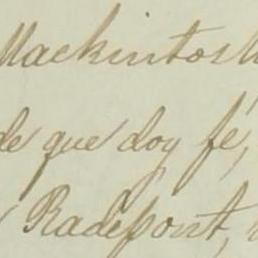 Mackintosh
de que doy fé,
Radepont,